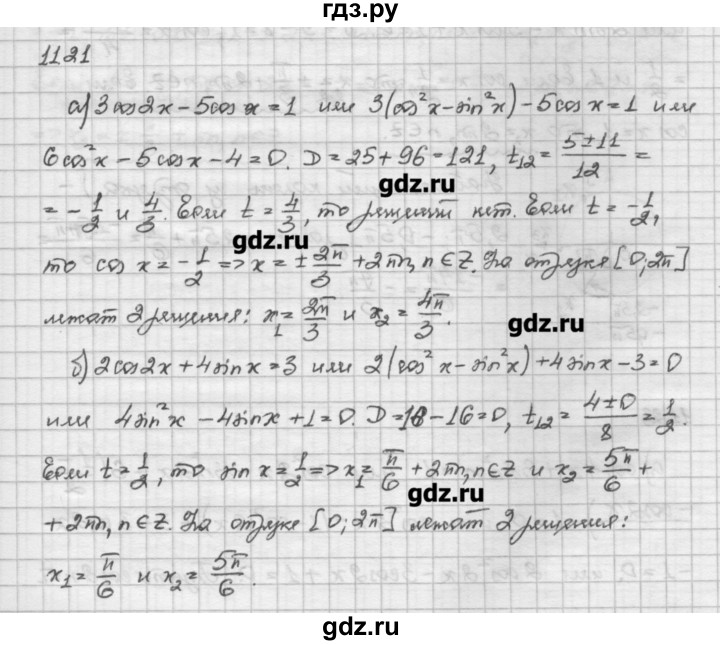 гдз.ру
1121
а) 3cos2x − 5cos x = 1 или 3(cos²x − sin²x) − 5cos x = 1 или
6cos²x − 5cosx − 4 = 0. D = 25 + 96 = 121, t₁₂ = (5 ± 11)/12 =
gdz.ru
= −1/2 и 4/3. Если t = 4/3, то решений нет. Если t = −1/2,
gdz.ru
то cos x = −1/2 => x = ±2π/3 + 2πn, n∈Z. На отрезке [0; 2π]
лежат 2 решения: x₁ = 2π/3 и x₂ = 4π/3.
gdz.ru
б) 2cos2x + 4sinx = 3 или 2(cos²x − sin²x) + 4sinx − 3 = 0
или 4sin²x − 4sinx + 1 = 0. D = 16 − 16 = 0, t₁₂ = (4 ± 0)/8 = 1/2.
Если t = 1/2, то sin x = 1/2 => x₁ = π/6 + 2πn, n∈Z и x₂ = 5π/6 +
gdz.ru
+ 2πn, n∈Z. На отрезке [0; 2π] лежат 2 решения:
x₁ = π/6 и x₂ = 5π/6.
gdz.ru
gdz.ru